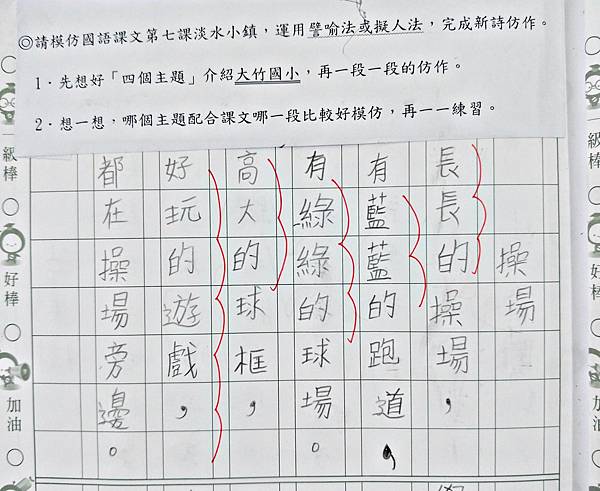 ◎請模仿國語課文第七課淡水小鎮，運用譬喻法或擬人法，完成新詩仿作。
1．先想好「四個主題」介紹大竹國小，再一段一段的仿作。
2．想一想，哪個主題配合課文哪一段比較好模仿，再一一練習。
操場
長長的操場，
有藍藍的跑道，
有綠綠的球場。
高大的球框，
好玩的遊戲，
都在操場旁邊。
級棒
好棒
加油
級棒
好棒
加油